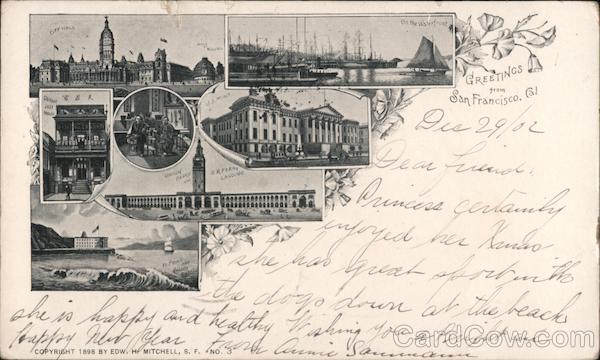 CITY HALL
On the Waterfront
GREETINGS
from
San Francisco, Cal
Dec 29/02
Dear friend,
Princess certainly
enjoyed her Xmas
she has great sport with
the dogs down at the beach
she is happy and healthy Wishing you a
happy New Year from Annie
UNION DEPOT
& FERRY
LANDING
COPYRIGHT 1898 BY EDW. H. MITCHELL, S. F. NO. 3
CardCow.com